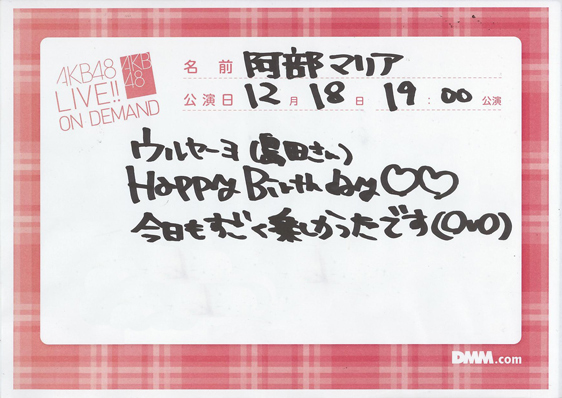 AKB48
LIVE!!
ON DEMAND
AKB
48
名前 阿部マリア
公演日 12月18日 19:00公演
ウルセーヨ(島田さん)
Happy Birth day♡♡
今日もすごく楽しかったです(OvO)
DMM.com